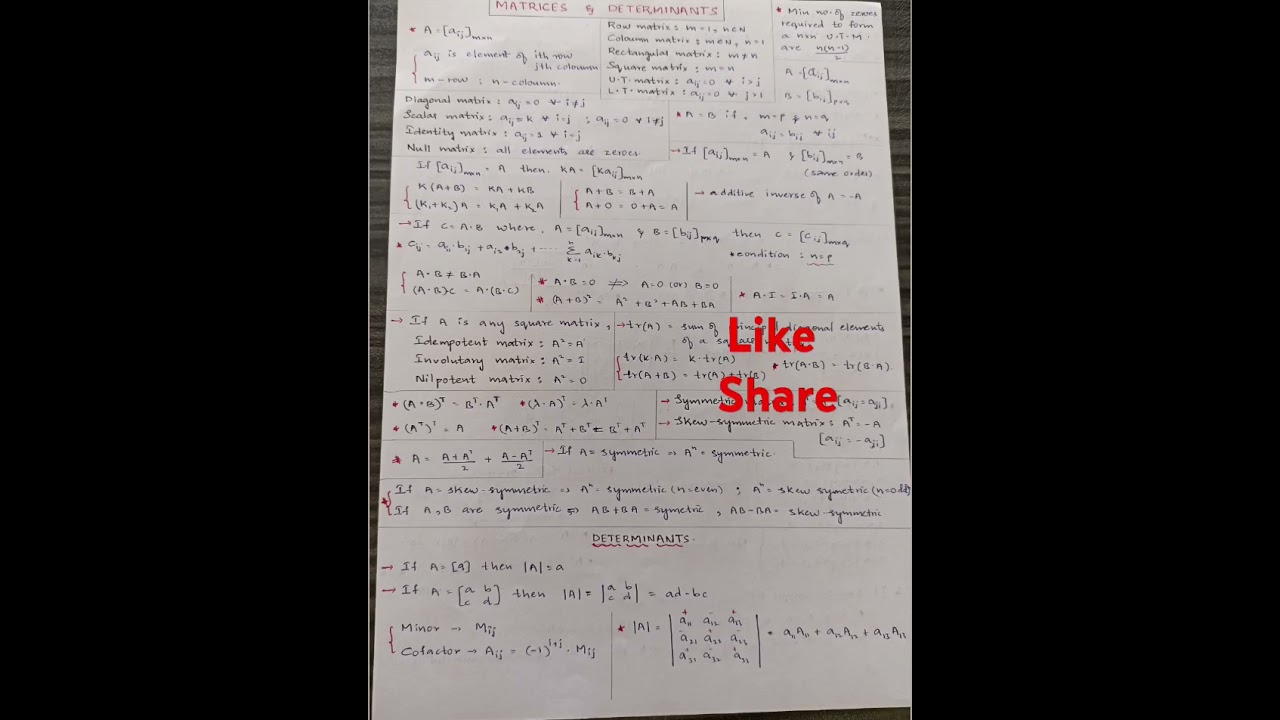 MATRICES & DETERMINANTS
* A = [aij]m×n
aij is element of ith row
jth coloumn
m-row : n-coloumn
Row matrix : m=1, n∈N
Coloumn matrix : m∈N, n=1
Rectangular matrix : m≠n
Square matrix : m=n
U.T. matrix : aij=0 ∀ i>j
L.T. matrix : aij=0 ∀ j>i
* Min no. of zeroes
required to form
a n×n U.T.M.
are n(n-1)/2
Diagonal matrix : aij=0 ∀ i≠j
Scalar matrix : aij=k ∀ i=j ; aij=0 ∀ i≠j
Identity matrix : aij=1 ∀ i=j
Null matrix : all elements are zeroes
A = [aij]m×n
B = [bij]p×q
* A=B if, m=p & n=q
aij = bij ∀ ij
→ If [aij]m×n = A & [bij]m×n = B
(same order)
If [aij]m×n = A then, KA = [kaij]m×n
K(A+B) = KA + KB
(K1+K2)A = K1A + K2A
A+B = B+A
A+O = O+A = A
→ additive inverse of A = -A
→ If C=A.B where, A=[aij]m×n & B=[bij]p×q then C = [cij]m×q
* Cij = ai1.b1j + ai2.b2j + ..... Σ(k=1 to n) aik.bkj
*condition : n=p
A.B ≠ B.A
(A.B)C = A.(B.C)
* A.B=0 ≠> A=0 (or) B=0
* (A+B)² = A² + B² + AB + BA
* A.I = I.A = A
→ If A is any square matrix,
Idempotent matrix : A²=A
Involutary matrix : A²=I
Nilpotent matrix : A²=0
→ tr(A) = sum of principal diagonal elements
of a
tr(K.A) = K.tr(A)
tr(A+B) = tr(A)+tr(B)
* tr(A.B) = tr(B.A).
Like
Share
*(A.B)ᵀ = Bᵀ.Aᵀ *(λ.A)ᵀ = λ.Aᵀ
* (Aᵀ)ᵀ = A *(A+B)ᵀ = Aᵀ+Bᵀ = Bᵀ+Aᵀ
→ Symmetric [aij=aji]
→ Skew-symmetric matrix : Aᵀ=-A
[aij=-aji]
* A = (A+Aᵀ)/2 + (A-Aᵀ)/2
→ If A = symmetric => Aⁿ = symmetric.
If A=skew-symmetric => Aⁿ= symmetric (n=even) ; Aⁿ= skew symetric (n=odd)
* If A,B are symmetric => AB+BA = symetric , AB-BA = skew-symmetric
DETERMINANTS.
→ If A=[a] then |A|=a
→ If A = [a b; c d] then |A| = |a b; c d| = ad-bc
Minor → Mij
Cofactor → Aij = (-1)^(i+j) . Mij
* |A| = |a11 a12 a13; a21 a22 a23; a31 a32 a33| = a11A11 + a12A12 + a13A13